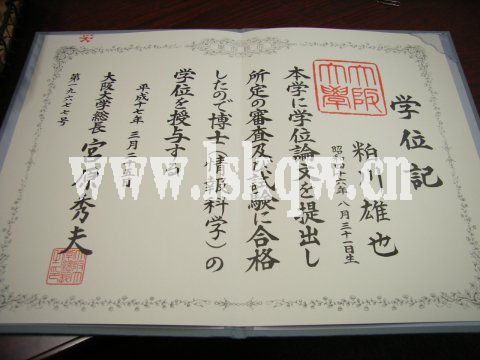 学位記
粕川雄也
昭和
年八月三十一日生
本学に学位論文を提出し
所定の審査及び試験に合格
したので博士(情報科学)の
学位を授与する
平成十七年三月二五日
大阪大学総長 宮原秀夫
第一九六七七号
大阪大学
www.lskqw.cn